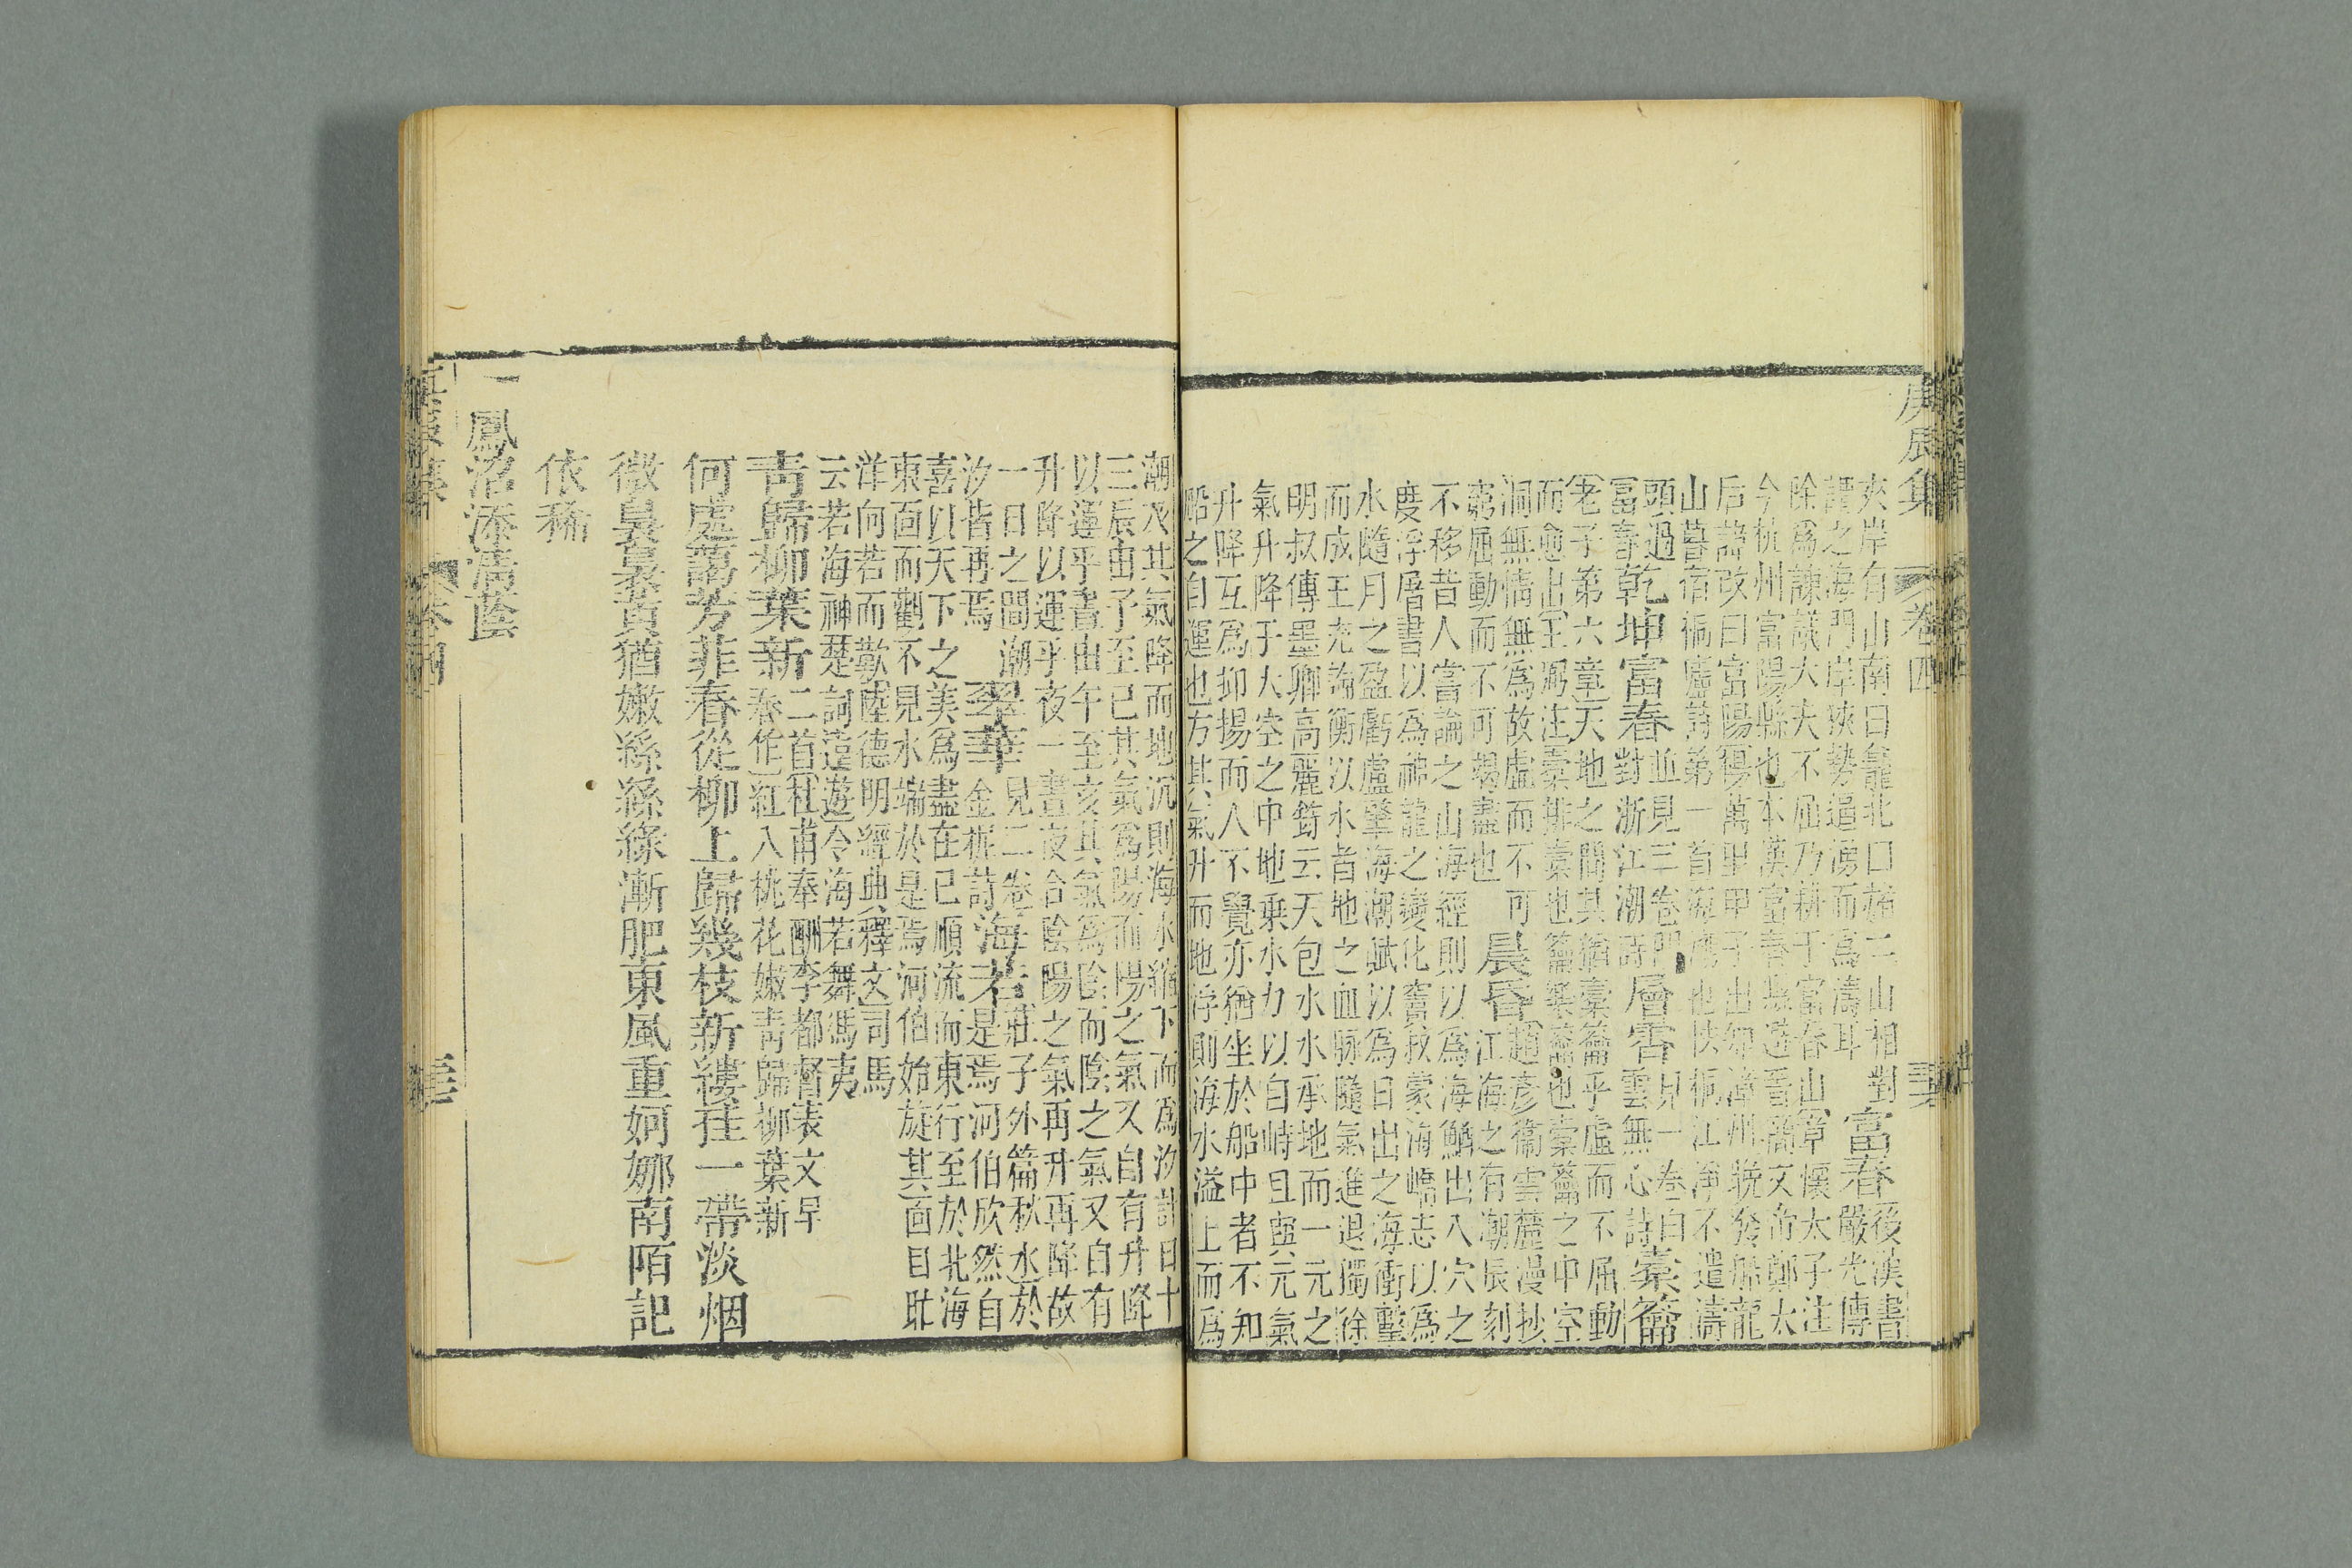 庚辰集 卷四
夾岸有山南曰龕北曰赭二山相對
謂之海門岸狹勢逼湧而為濤耳
富春
後漢書
嚴光傳
除為諫議大夫不屈乃耕于富春山章懷太子注
今杭州富陽縣也本漢富春縣避晉簡文帝鄭太
后諱改曰富陽楊萬里甲子出知漳州晚發船龍
山暮宿桐廬詩第一首海潮也怯桐江淨不遣濤
頭過
富春
乾坤富春
並見三卷
對浙江潮詩
層霄
見一卷白
雲無心詩
橐籥
老子第六章天地之間其猶橐籥乎虛而不屈動
而愈出王弼注橐排橐也籥樂籥也橐籥之中空
洞無情無為故虛而不可
窮屈動而不可竭盡也
晨昏
趙彥衞雲麓漫抄
江海之有潮辰刻
不移昔人嘗論之山海經則以為海鰌出入穴之
度浮屠書以為神龍之變化竇叔蒙海嶠志以為
水隨月之盈虧盧肇海潮賦以為日出之海衝擊
而成王充論衡以水者地之血脉隨氣進退獨徐
明叔傳墨卿高麗錄云天包水水承地而一元之
氣升降于太空之中地乗水力以自峙且與元氣
升降互為抑揚而人不覺亦猶坐於船中者不知
船之自運也方其氣升而地浮則海水溢上而為
潮及其氣降而地沉則海水縮下而為汐計日十
三辰由子至巳其氣為陽而陽之氣又自有升降
以運乎晝由午至亥其氣為陰而陰之氣又自有
升降以運乎夜一晝夜合陰陽之氣再升再降故
一日之間潮
汐皆再焉
翠華
見二卷
金柅詩
海若
莊子外篇秋水於
是焉河伯欣然自
喜以天下之美為盡在已順流而東行至於北海
東面而觀不見水端於是焉河伯始旋其面目盳
洋向若而歎陸德明經典釋文司馬
云若海神楚詞遠遊令海若舞馮夷
青歸柳葉新
二首杜甫奉酬李都督表丈早
春作紅入桃花嫩青歸柳葉新
何處藹芳菲春從柳上歸幾枝新縷挂一帶淡烟
微裊裊黃猶嫩絲絲綠漸肥東風重婀娜南陌記
依稀
一鳳沼添清蔭